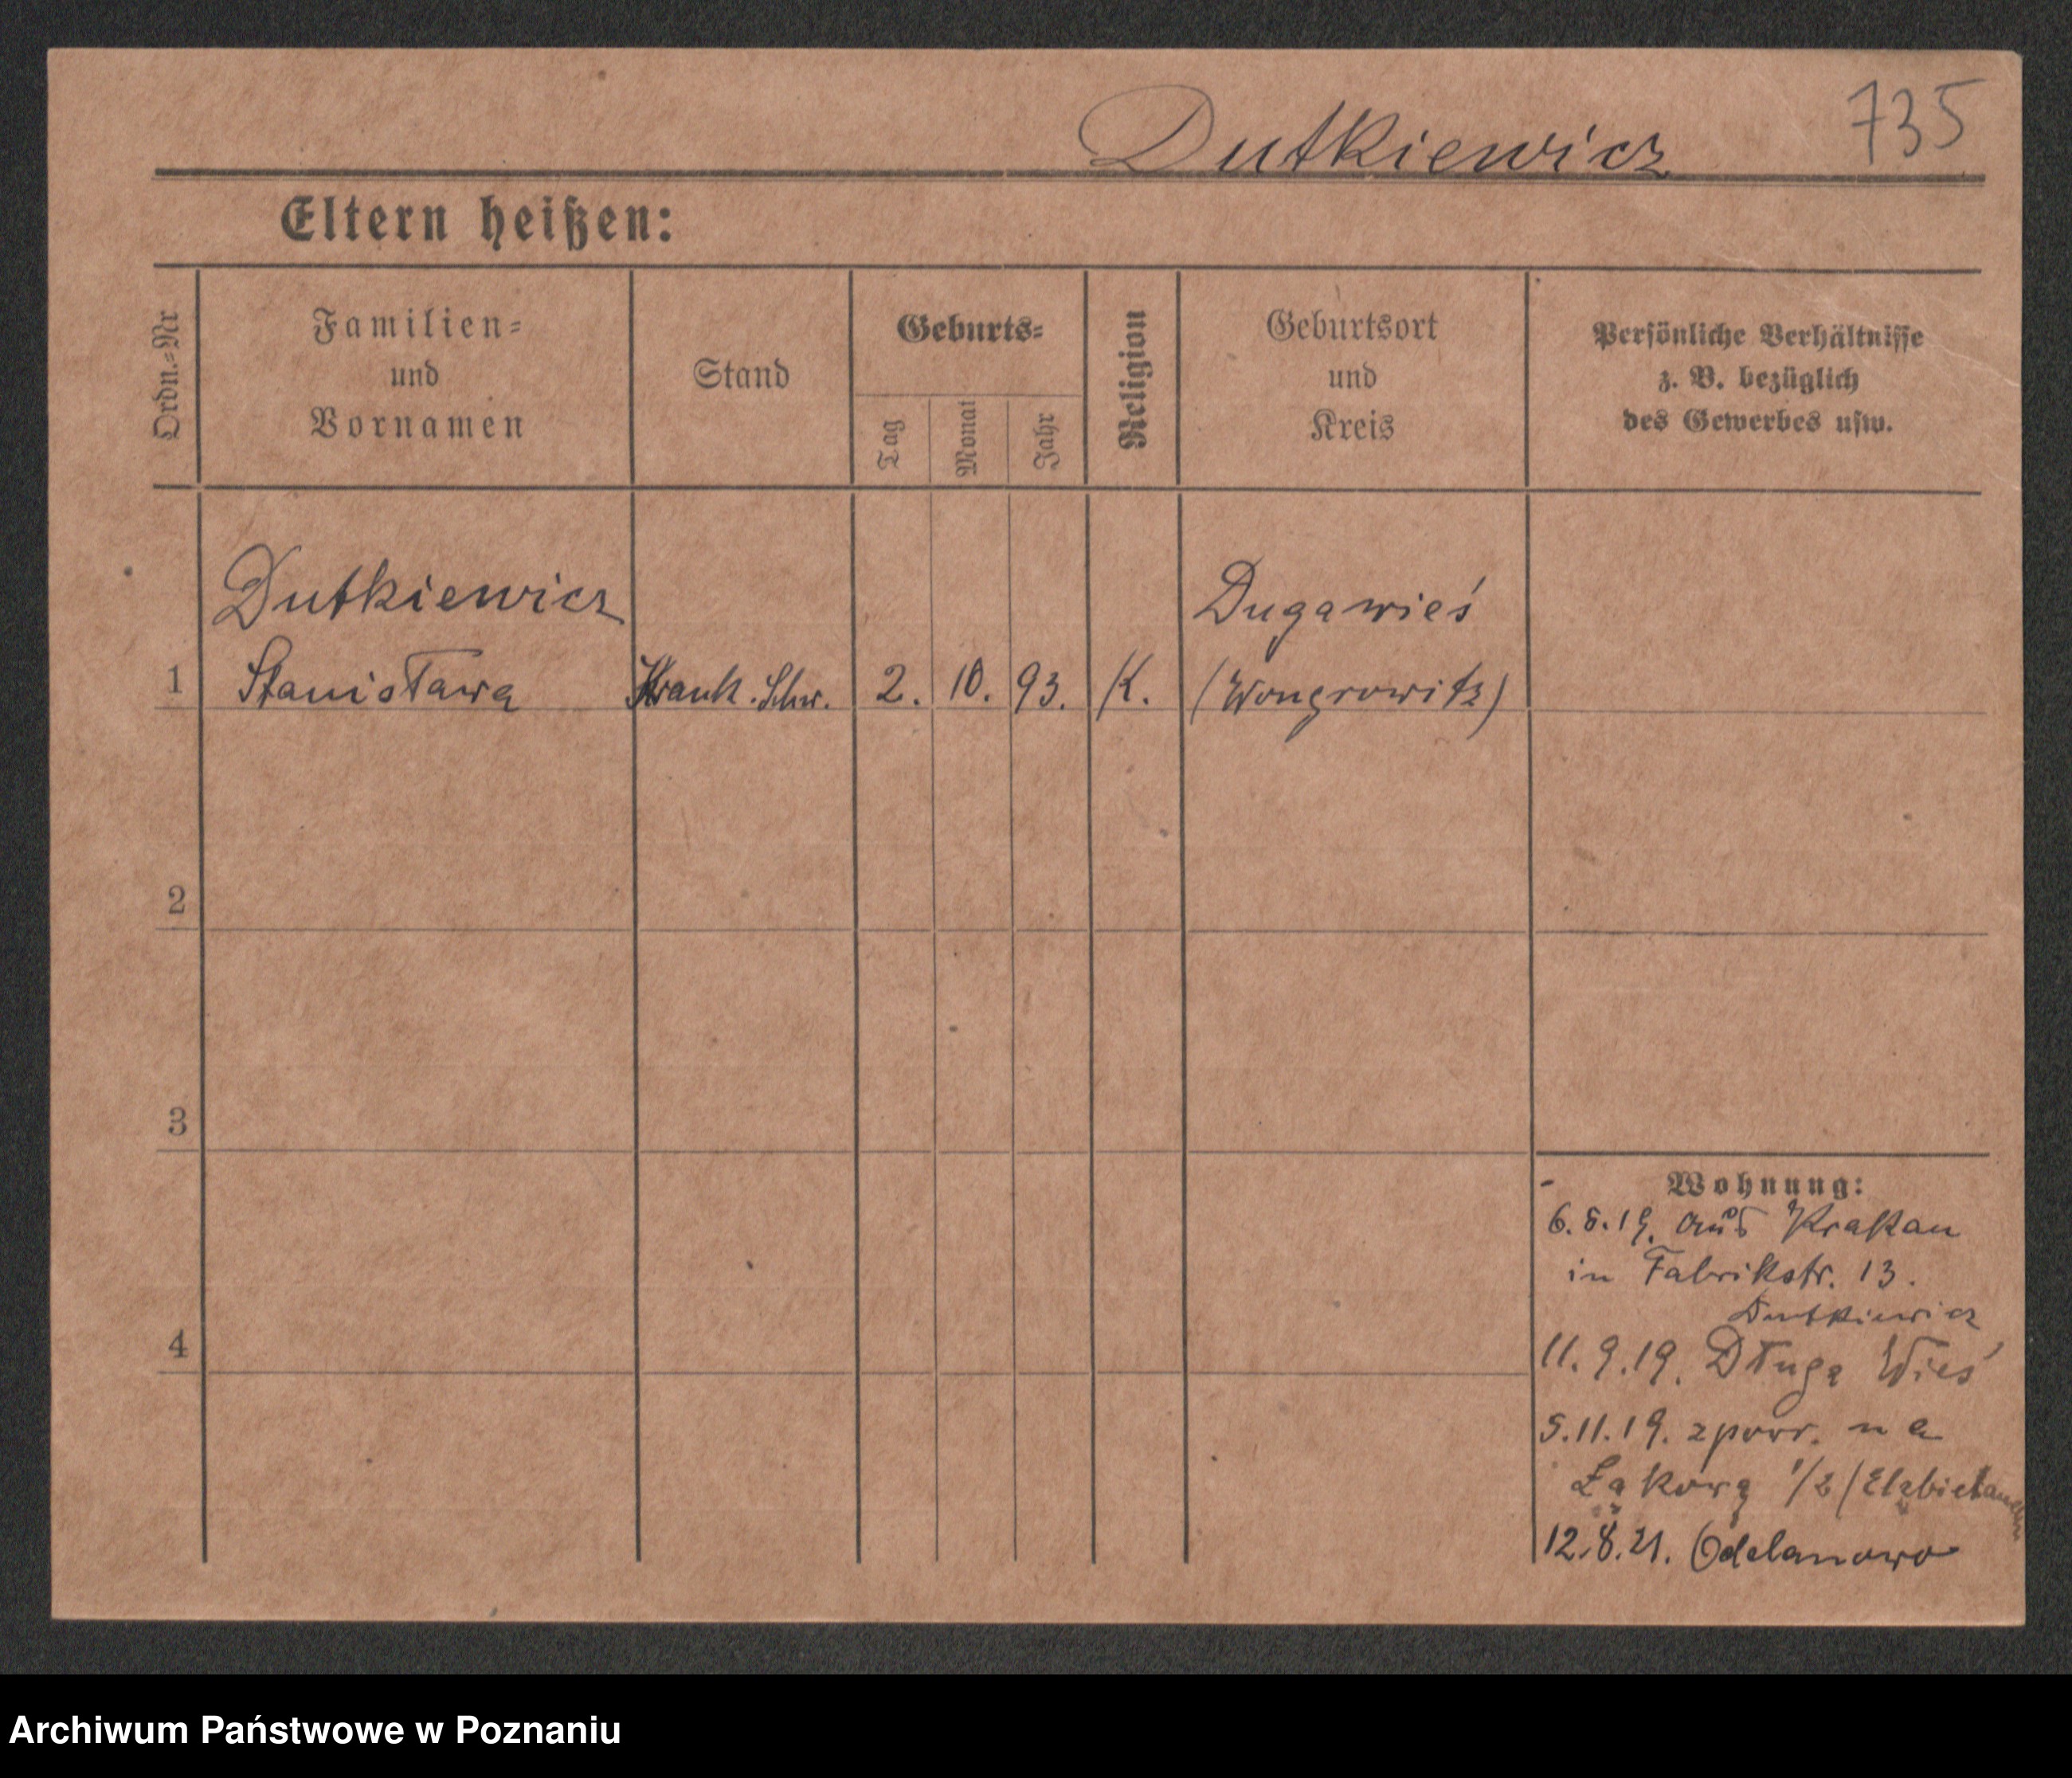 Dutkiewicz
735
Eltern heißen:
Ordn.=Nr
Familien=
und
Vornamen
Stand
Geburts=
Tag
Monat
Jahr
Religion
Geburtsort
und
Kreis
Persönliche Verhältnisse
z. B. bezüglich
des Gewerbes usw.
Dutkiewicz
Dugawieś
1 Stanisława Krank. Schw. 2. 10. 93. K. (Wongrowitz)
2
3
4
Wohnung:
6.8.19. aus Krakau
in Fabrikstr. 13.
Dutkiewicz
11.9.19. Długa Wieś
5.11.19. zpowr. na
Łąkową 1/2 (Elzbietanek
12.8.21. Odolanowo
Archiwum Państwowe w Poznaniu